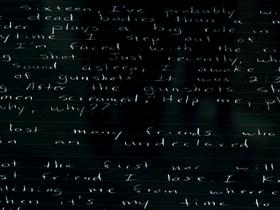 sixteen, I've probably
dead bodies than a
play a big role in
time I step out of
I'm faced with the
shot. Just recently, wh
sound asleep, I awoke
of gunshots. It was 2:
After the gunshots s
screamed: Help me, p
why, why??
lost many friends who
in an undeclared
not the first nor will
st friend I lose. I k
tching me from where
hen it's my time to